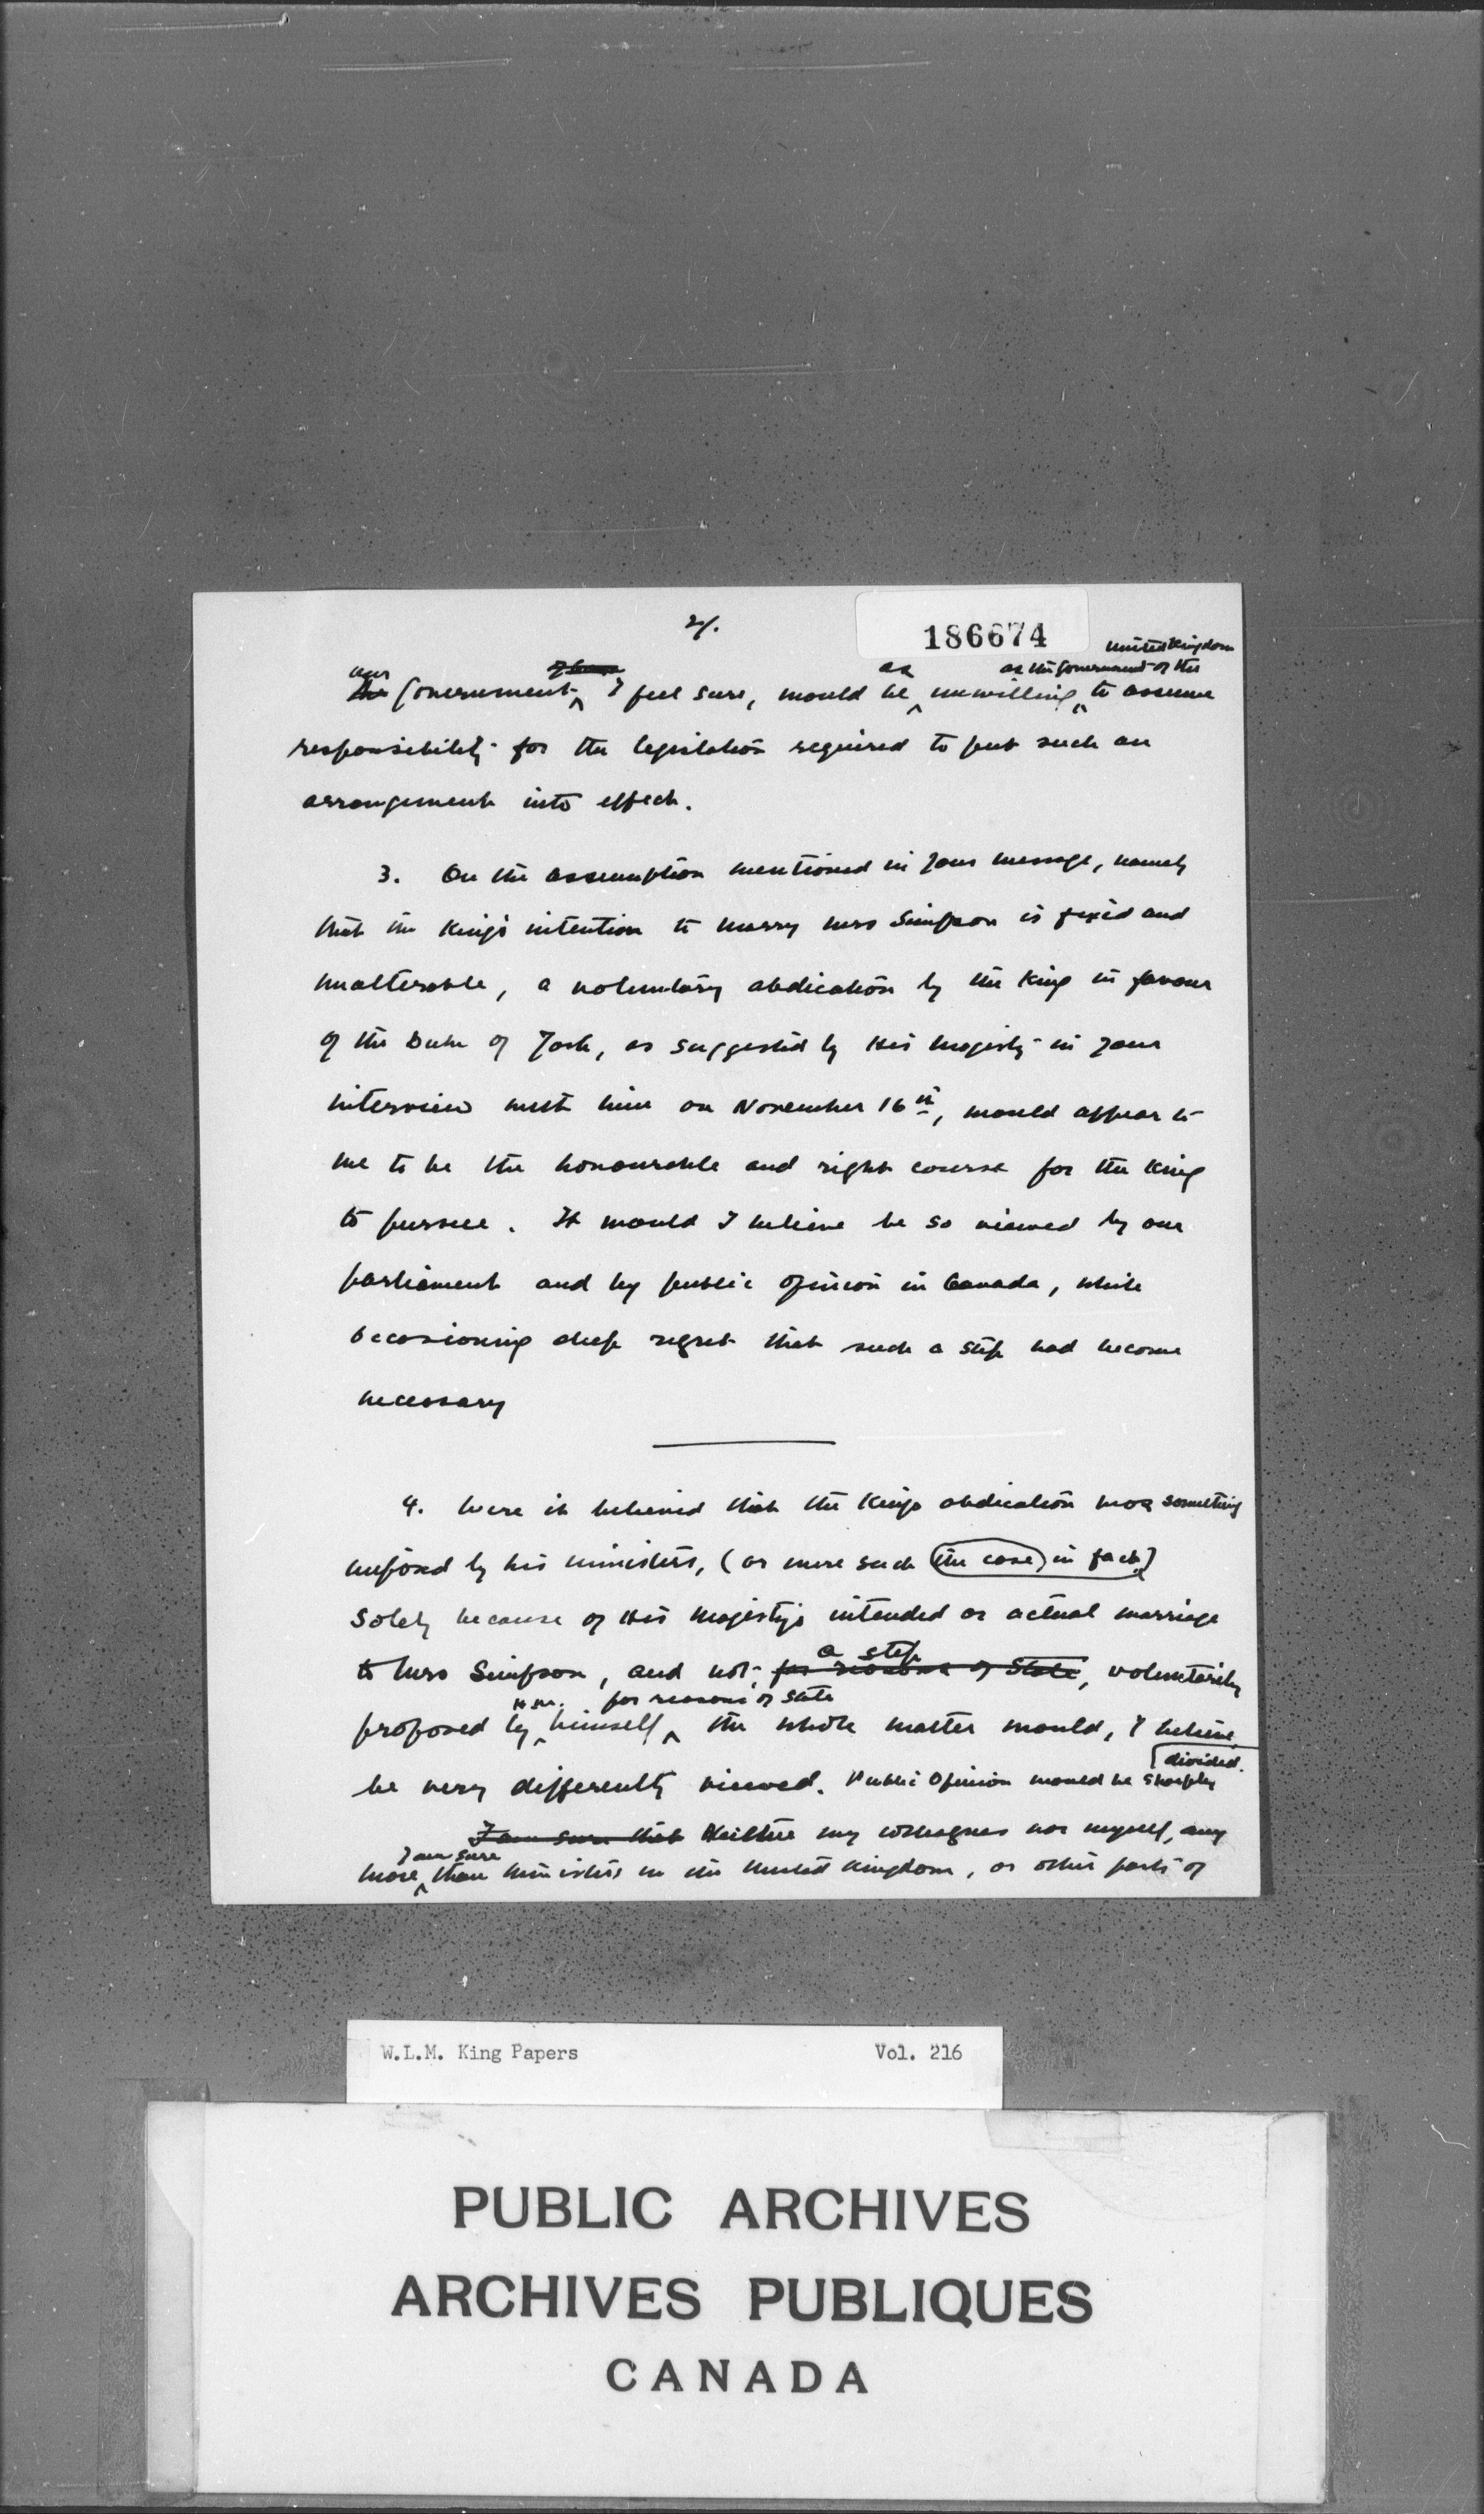 2/.
186674
United Kingdom
our as as the Government of the
The Government I feel sure, would be unwilling to assume
responsibility for the legislation required to put such an
arrangement into effect.
3. On the assumption mentioned in your message, namely
that the King's intention to marry Mrs Simpson is fixed and
unalterable, a voluntary abdication by the King in favour
of the Duke of York, as suggested by His Majesty in your
interview with him on November 16th, would appear to
me to be the honourable and right course for the King
to pursue. It would I believe be so viewed by our
parliament and by public opinion in Canada, while
occasioning deep regret that such a step had become
necessary
4. Were it believed that the King's abdication was something
imposed by his ministers, (or were such the case) in fact,)
solely because of His Majesty's intended or actual marriage
a step
to Mrs Simpson, and not, for reasons of State, voluntarily
H.M. for reasons of state
proposed by himself the whole matter would, I believe,
divided.
be very differently viewed. Public Opinion would be sharply
I am sure that Neither my colleagues nor myself, any
I am sure
more than Ministers in the United Kingdom, or other parts of
W.L.M. King Papers Vol. 216
PUBLIC ARCHIVES
ARCHIVES PUBLIQUES
CANADA